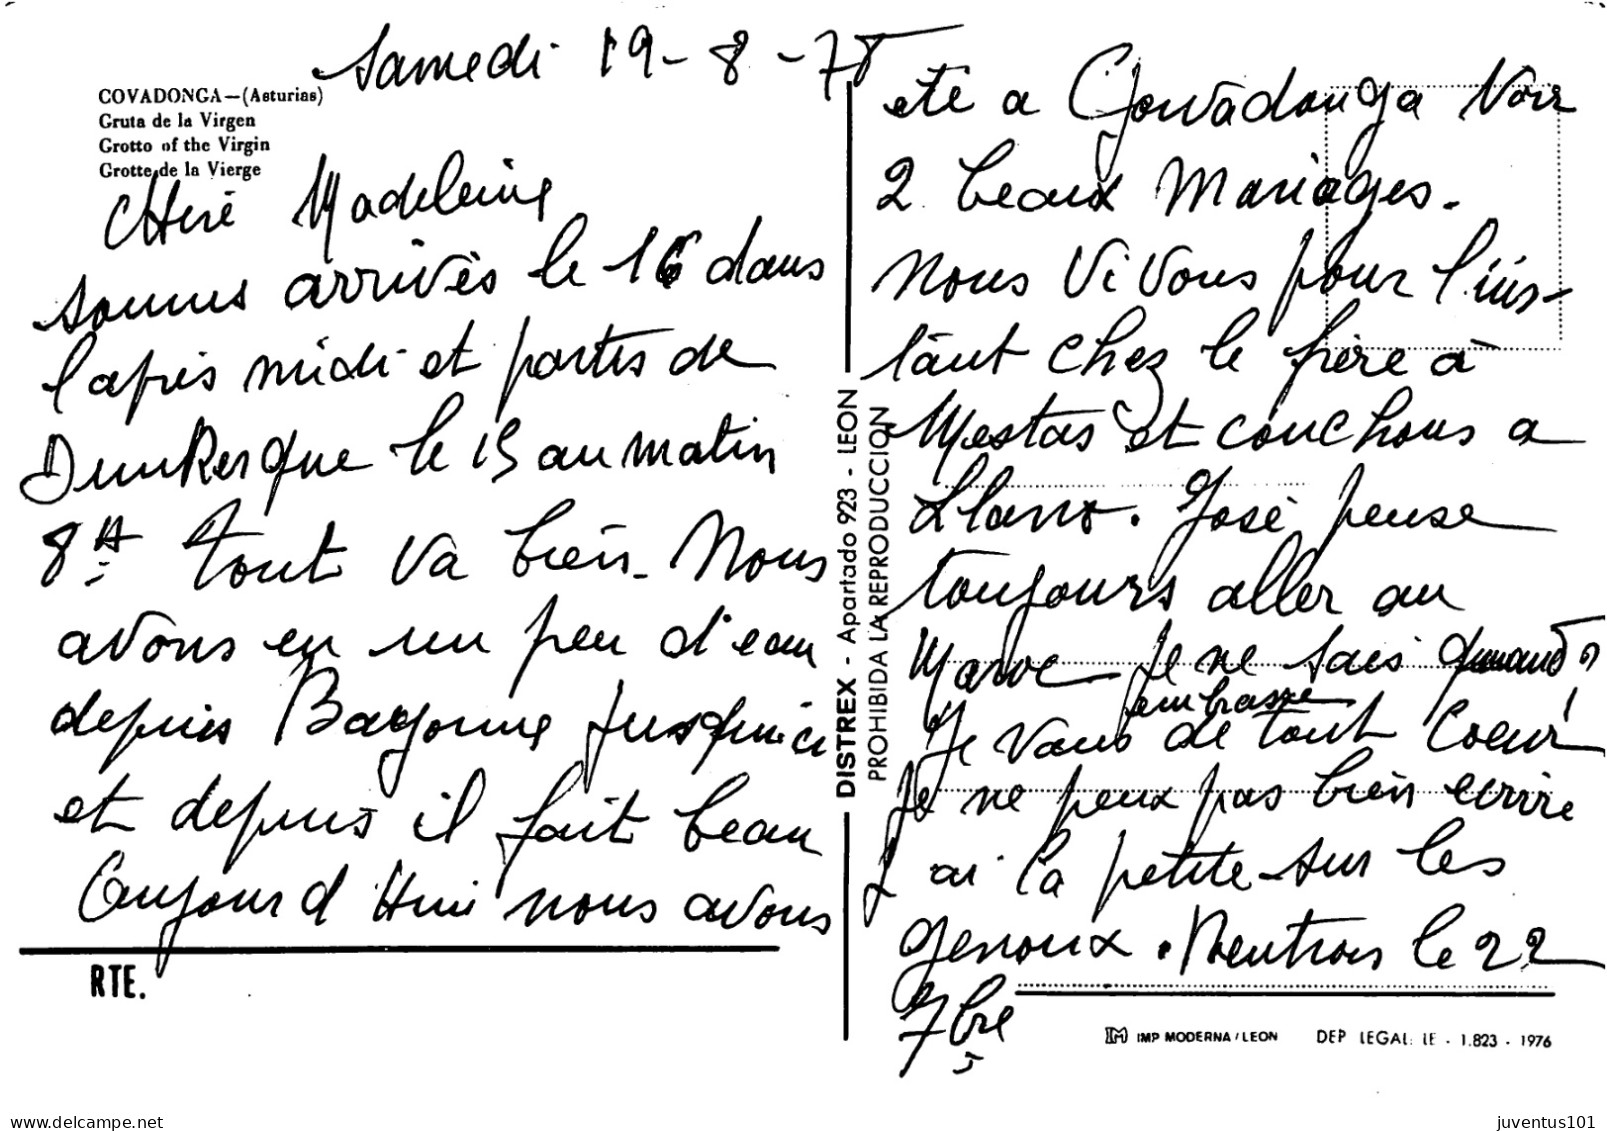 Samedi 19-8-78
COVADONGA—(Asturias)
Gruta de la Virgen
Grotto of the Virgin
Grotte de la Vierge
Chère Madeleine
sommes arrivés le 16 dans
l'après midi et partis de
Dunkerque le 15 au matin
8H tout va bien. Nous
avons eu un peu d'eau
depuis Bayonne jusqu'ici
et depuis il fait beau
Aujourd'Hui nous avons
RTE.
DISTREX - Apartado 923 - LEON
PROHIBIDA LA REPRODUCCION
eté a Covadonga Voir
2 beaux Mariages.
Nous Vivons pour l'ins-
tant chez le frère à
Mestas et couchons a
Llano. José pense
toujours aller au
Maroc Je ne sais quand?
embrasse !
Je vous de tout Coeur
Je ne peux pas bien ecrire
J'ai la petite sur les
genoux. Rentrons le 22
7bre
IM IMP MODERNA / LEON DEP LEGAL: LE - 1.823 - 1976
delcampe.net
juventus101